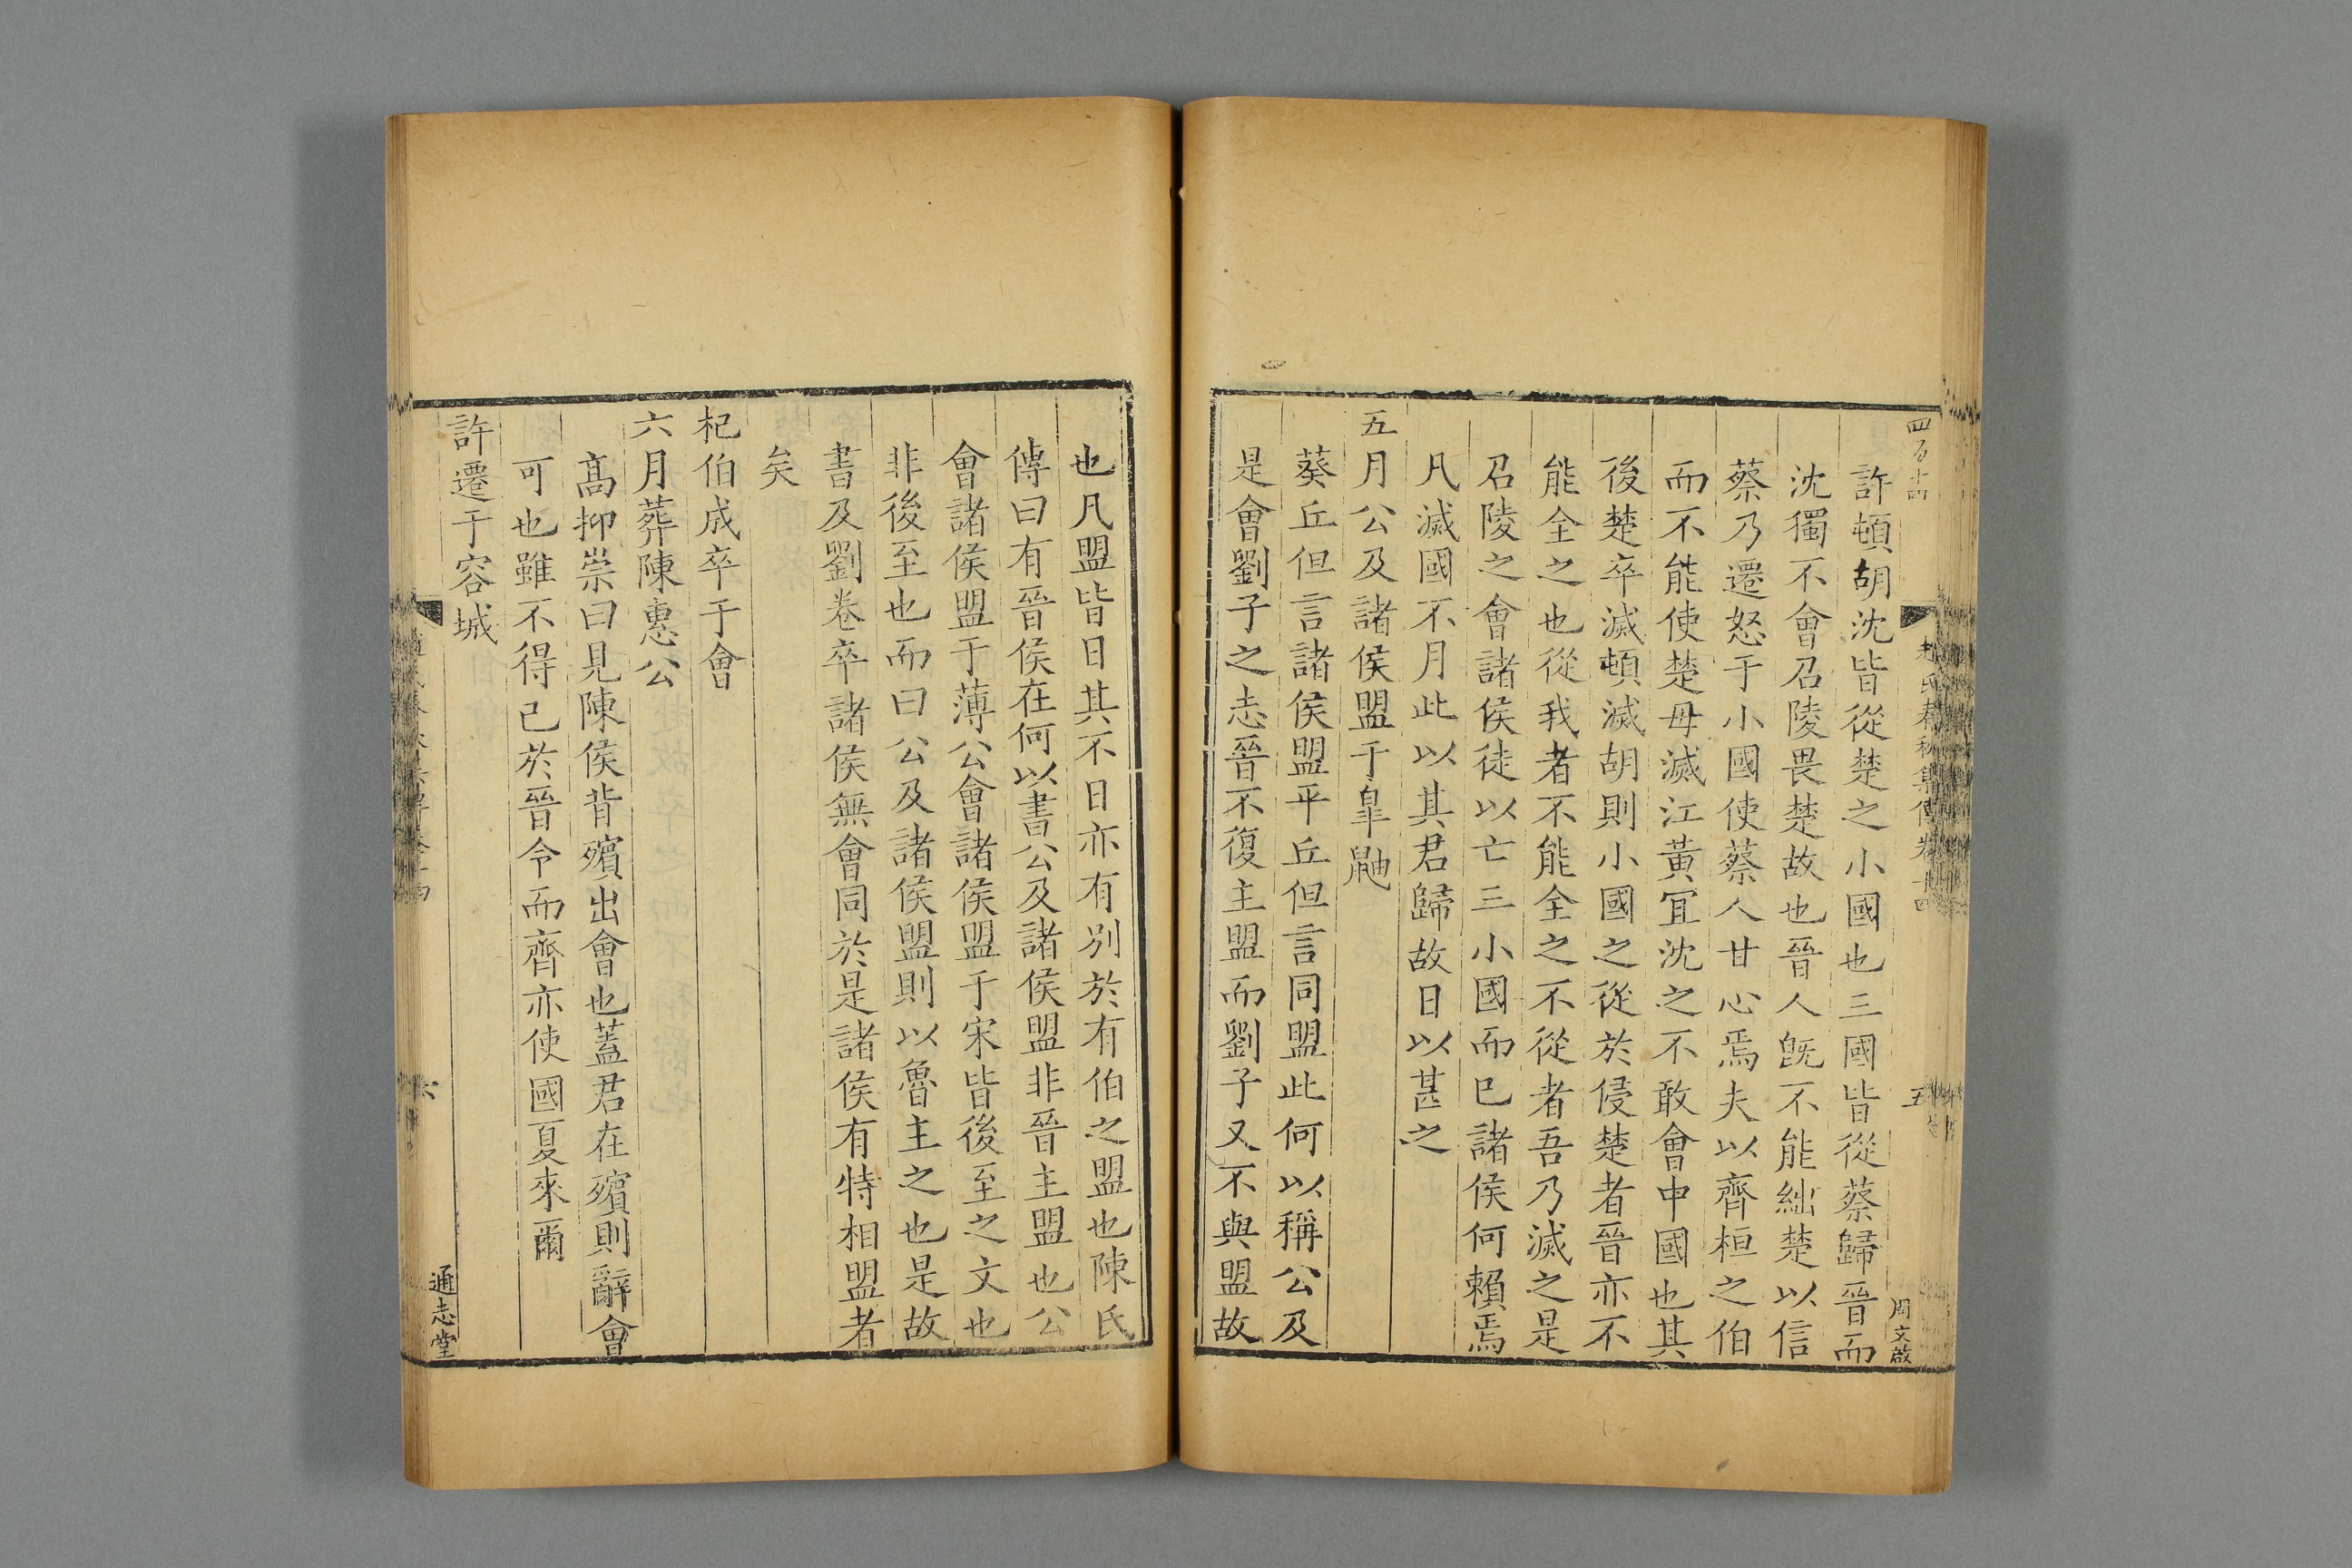 四百十四
許頓胡沈皆從楚之小國也三國皆從蔡歸晉而
沈獨不會召陵畏楚故也晉人既不能絀楚以信
蔡乃遷怒于小國使蔡人甘心焉夫以齊桓之伯
而不能使楚毋滅江黃宜沈之不敢會中國也其
後楚卒滅頓滅胡則小國之從於侵楚者晉亦不
能全之也從我者不能全之不從者吾乃滅之是
召陵之會諸侯徒以亡三小國而已諸侯何賴焉
凡滅國不月此以其君歸故日以甚之
五月公及諸侯盟于皐鼬
葵丘但言諸侯盟平丘但言同盟此何以稱公及
是會劉子之志晉不復主盟而劉子又不與盟故
趙氏春秋集傳卷十四
五
周文啟
也凡盟皆日其不日亦有別於有伯之盟也陳氏
傳曰有晉侯在何以書公及諸侯盟非晉主盟也公
會諸侯盟于薄公會諸侯盟于宋皆後至之文也
非後至也而曰公及諸侯盟則以魯主之也是故
書及劉卷卒諸侯無會同於是諸侯有特相盟者
矣
杞伯成卒于會
六月葬陳惠公
高抑崇曰見陳侯背殯出會也蓋君在殯則辭會
可也雖不得已於晉令而齊亦使國夏來爾
許遷于容城
六
通志堂